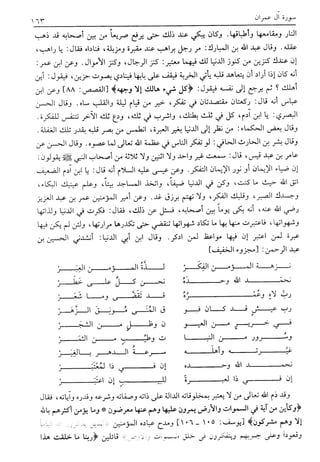 سورة آل عمران ١٦٣
النار ومقامعها وأطباقها. وكان يبكي عند ذلك حتى يرفع صريعاً من بين أصحابه قد ذهب
عقله. وقال عبد الله بن المبارك: مر رجل براهب عند مقبرة ومزبلة، فناداه فقال: يا راهب،
إن عندك كنزين من كنوز الدنيا لك فيهما معتبر: كنز الرجال، وكنز الأموال. وعن ابن عمر:
أنه كان إذا أراد أن يتعاهد قلبه يأتي الخربة فيقف على بابها فينادي بصوت حزين، فيقول: أين
أهلك؟ ثم يرجع إلى نفسه فيقول: ﴿كل شيء هالك إلا وجهه﴾ [القصص: ٨٨] وعن ابن
عباس أنه قال: ركعتان مقتصدتان في تفكر، خير من قيام ليلة والقلب ساه. وقال الحسن
البصري: يا ابن آدم، كل في ثلث بطنك، واشرب في ثلثه، ودع ثلثه الآخر تتنفس للفكرة.
وقال بعض الحكماء: من نظر إلى الدنيا بغير العبرة، انطمس من بصر قلبه بقدر تلك الغفلة.
وقال بشر بن الحارث الحافي: لو تفكر الناس في عظمة الله تعالى لما عصوه. وقال الحسن عن
عامر بن عبد قيس، قال: سمعت غير واحد ولا اثنين ولا ثلاثة من أصحاب النبي ﷺ يقولون:
إن ضياء الإيمان أو نور الإيمان التفكر. وعن عيسى عليه السلام أنه قال: يا ابن آدم الضعيف
اتق الله حيث ما كنت، وكن في الدنيا ضيفاً، واتخذ المساجد بيتاً، وعلم عينيك البكاء،
وجسدك الصبر، وقلبك الفكر، ولا تهتم برزق غد. وعن أمير المؤمنين عمر بن عبد العزيز
رضي الله عنه، أنه بكى يوماً بين أصحابه، فسئل عن ذلك، فقال: فكرت في الدنيا ولذاتها
وشهواتها، فاعتبرت منها بها ما تكاد شهواتها تنقضي حتى تكدرها مرارتها، ولئن لم يكن فيها
عبرة لمن اعتبر إن فيها مواعظ لمن ادكر. وقال ابن أبي الدنيا: أنشدني الحسين بن
عبد الرحمن: [مجزوء الخفيف]
نزهة المؤمن الفكر لذة المؤمن العبر
نحمد الله وحده نحن كل على خطر
رب لاه وعمره قد تقضى وما شعر
رب عيش قد كان فو ق المنى مونق الزهر
في خرير من العيو ن وظل من الشجر
وسرور من النبا ت وطيب من الثمر
غيرته وأهله سرعة الدهر بالغير
نحمد الله وحده إن في ذا لمعتبر
إن في ذا لعبرة للبيب إن اعتبر
وقد ذم الله تعالى من لا يعتبر بمخلوقاته الدالة على ذاته وصفاته وشرعه وقدره وآياته، فقال
﴿وكأين من آية في السموات والأرض يمرون عليها وهم عنها معرضون * وما يؤمن أكثرهم بالله
إلا وهم مشركون﴾ [يوسف: ١٠٥ - ١٠٦] ومدح عباده المؤمنين
وقعودا وعلى جنوبهم ويتفكرون في خلق قائلين ﴿ربنا ما خلقت هذا